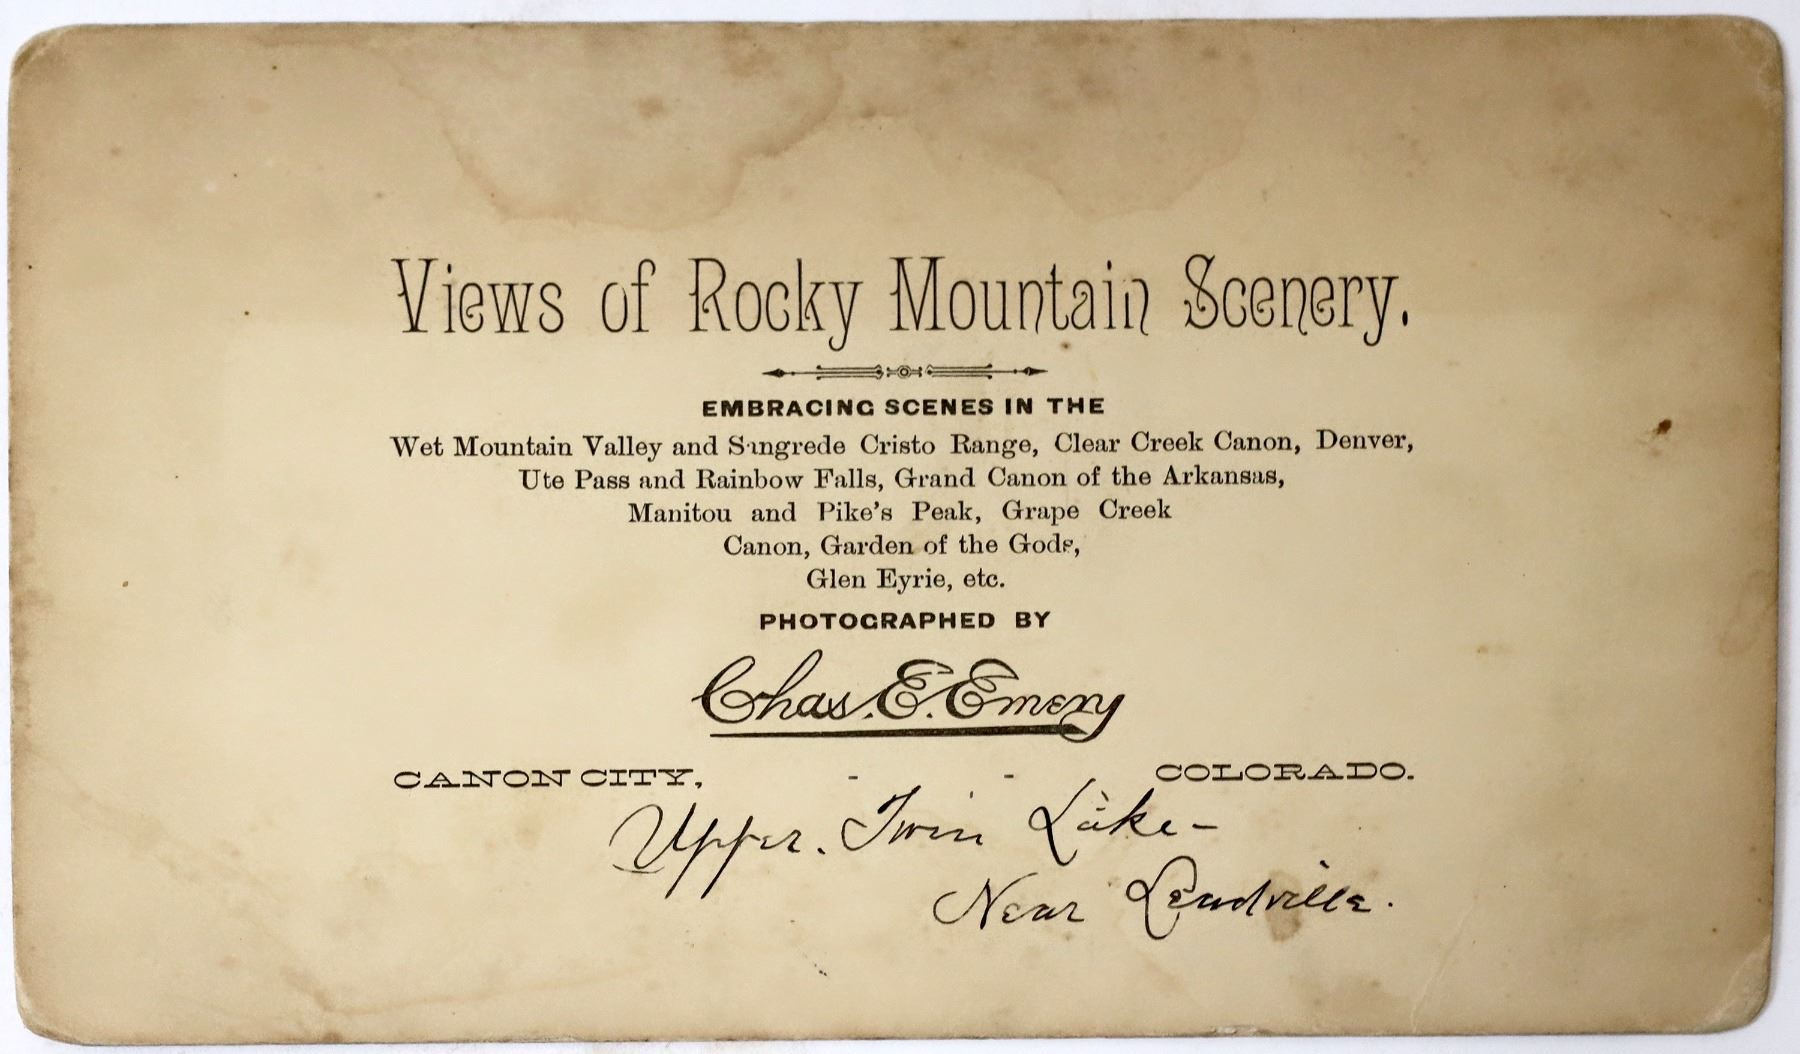 Views of Rocky Mountain Scenery.
EMBRACING SCENES IN THE
Wet Mountain Valley and Sangrede Cristo Range, Clear Creek Canon, Denver,
Ute Pass and Rainbow Falls, Grand Canon of the Arkansas,
Manitou and Pike's Peak, Grape Creek
Canon, Garden of the Gods,
Glen Eyrie, etc.
PHOTOGRAPHED BY
Chas. E. Emery
CANON CITY, - - COLORADO.
Upper. Twin Lake-
Near Leadville.